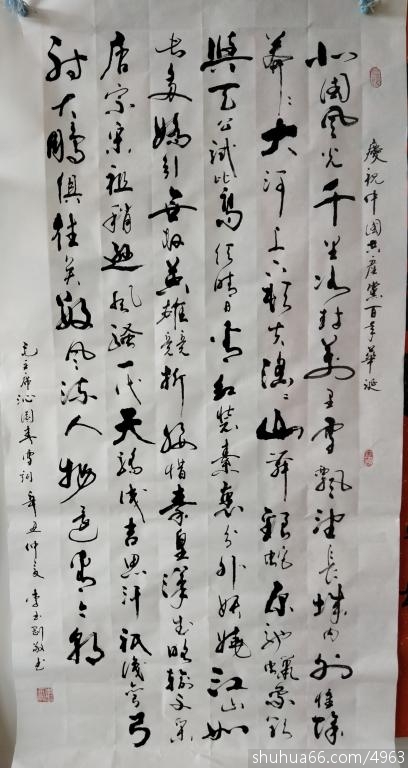 慶祝中国共産黨百年華誕
北國風光千里冰封萬里雪飄望長城内外惟餘
莽々大河上下頓失滔々山舞銀蛇原馳蠟象欲
與天公試比高須晴日看紅裝素裹分外妖嬈江山如
此多嬌引無數英雄競折腰惜秦皇漢武略輸文采
唐宗宋祖稍遜風騷一代天驕成吉思汗祇識彎弓
射大鵰俱往矣數風流人物還看今朝
毛主席沁園春雪詞辛丑仲夏李玉剛敬书
shuhua66.com/4963